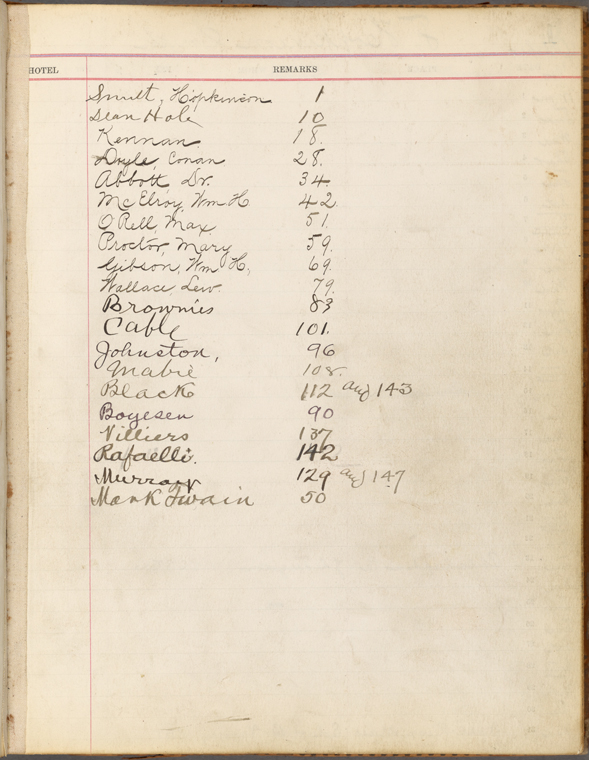 HOTEL REMARKS
Smith, Hopkinson 1
Dean Hole 10
Kennan 18.
Doyle, Conan 28.
Abbott, Dr. 34.
McElroy, Wm H 42.
O'Rell, Max, 51.
Proctor, Mary 59.
Gibson, Wm H, 69.
Wallace, Lew. 79.
Brownies 83
Cable 101.
Johnston, 96
Mabie 108.
Black 112 and 143
Boyesen 90
Villiers 137
Rafaelli. 142
Murray 129 and 147
Mark Twain 50